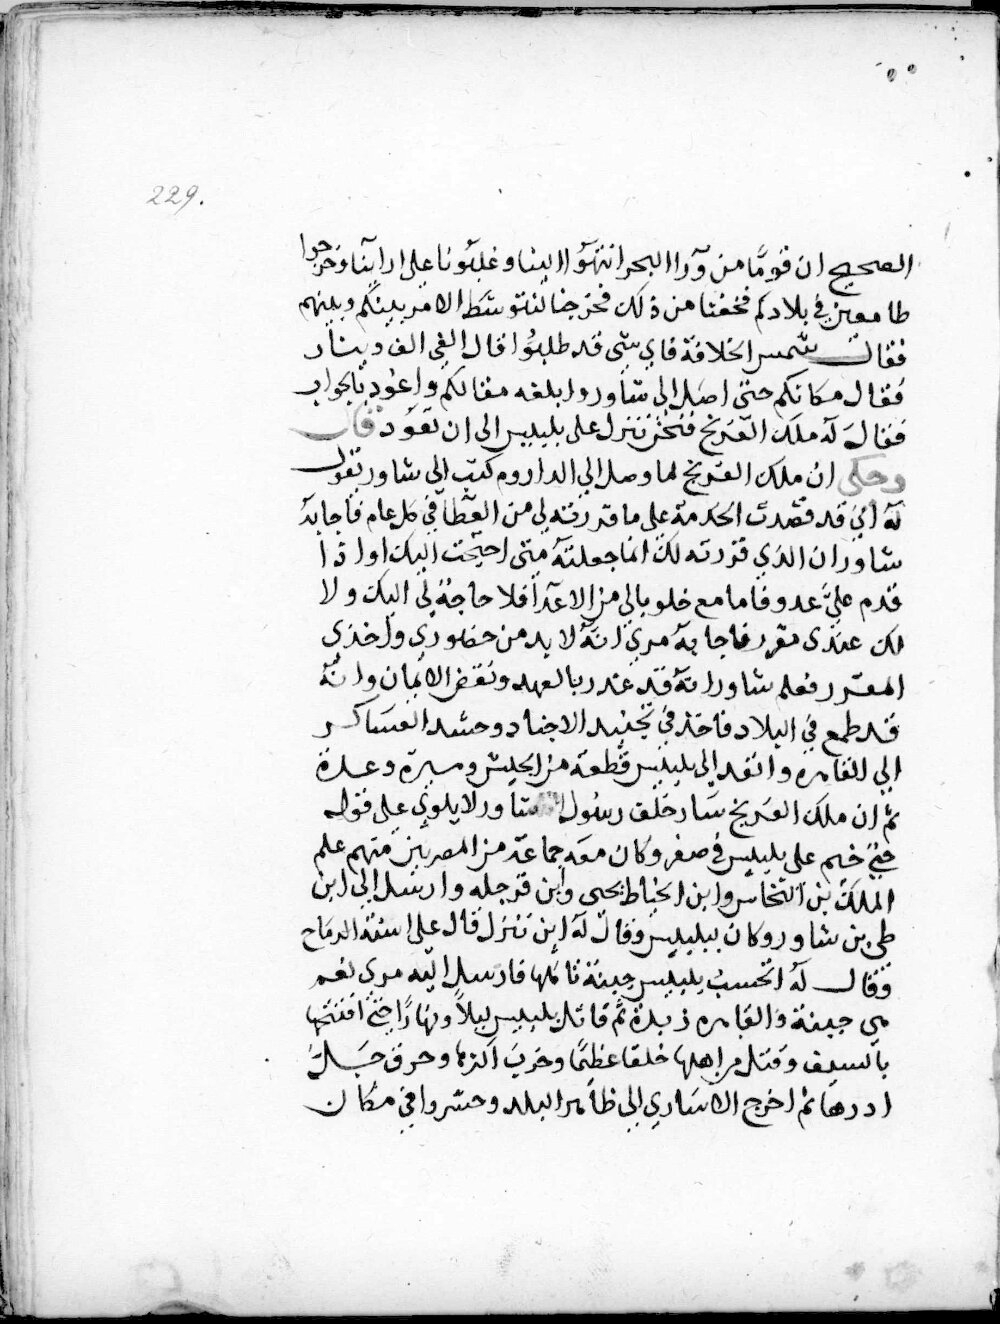 229.
الصحيح ان قومًا من ورا البحر انتهوا الينا وغلبونا على ارائنا وخرجوا
طامعين في بلادكم فخفنا من ذلك فخرجنا لنتوسط الامر بينكم وبينهم
فقال شمس الخلافة فاي شي قد طلبوا قال الفي الف دينار
فقال مكانكم حتى اصل الى شاور وابلغه مقالكم واعود بالجواب
فقال له ملك الفرنج فنحن ننزل على بلبيس الى ان تعود قال
وحكى ان ملك الفرنج لما وصل الى الداروم كتب الى شاور يقول
له اني قد قصدت الخدمة على ما قررته لي من العطا في كل عام فاجابه
شاور ان الذي قررته لك انما جعلته متى احتجت اليك او اذا
قدم علي عدو فاما مع خلو بالي من الاعدا فلا حاجة لي اليك ولا
لك عندي مقرر فاجابه مري انه لا بد من حضوري واخذي
المقرر فعلم شاور انه قد غدر بالعهد ونقض الايمان وانه
قد طمع في البلاد فاخذ في تجنيد الاجناد وحشد العساكر
الى القاهره وانفذ الى بلبيس قطعة من الجيش وميرة وعدة
ثم ان ملك الفرنج سار خلف رسول شاور لا يلوي على قوله
حتى خيم على بلبيس في صفر وكان معه جماعة من المصريين منهم علم
الملك بن النحاس وابن الخياط يحيى وابن قرجله وارسل الى ابن
طي بن شاور وكان ببلبيس وقال له اين ننزل قال على اسنة الرماح
وقال له اتحسب بلبيس جبنة تاكلها فارسل اليه مري نعم
هي جبنة والقاهره زبدة ثم قاتل بلبيس ليلاً ونهارًا حتى افتتحها
بالسيف وقتل من اهلها خلقا عظيمًا وخرب اكثرها وحرق جل
ادرها ثم اخرج الاسارى الى ظاهر البلد وحشروا في مكان